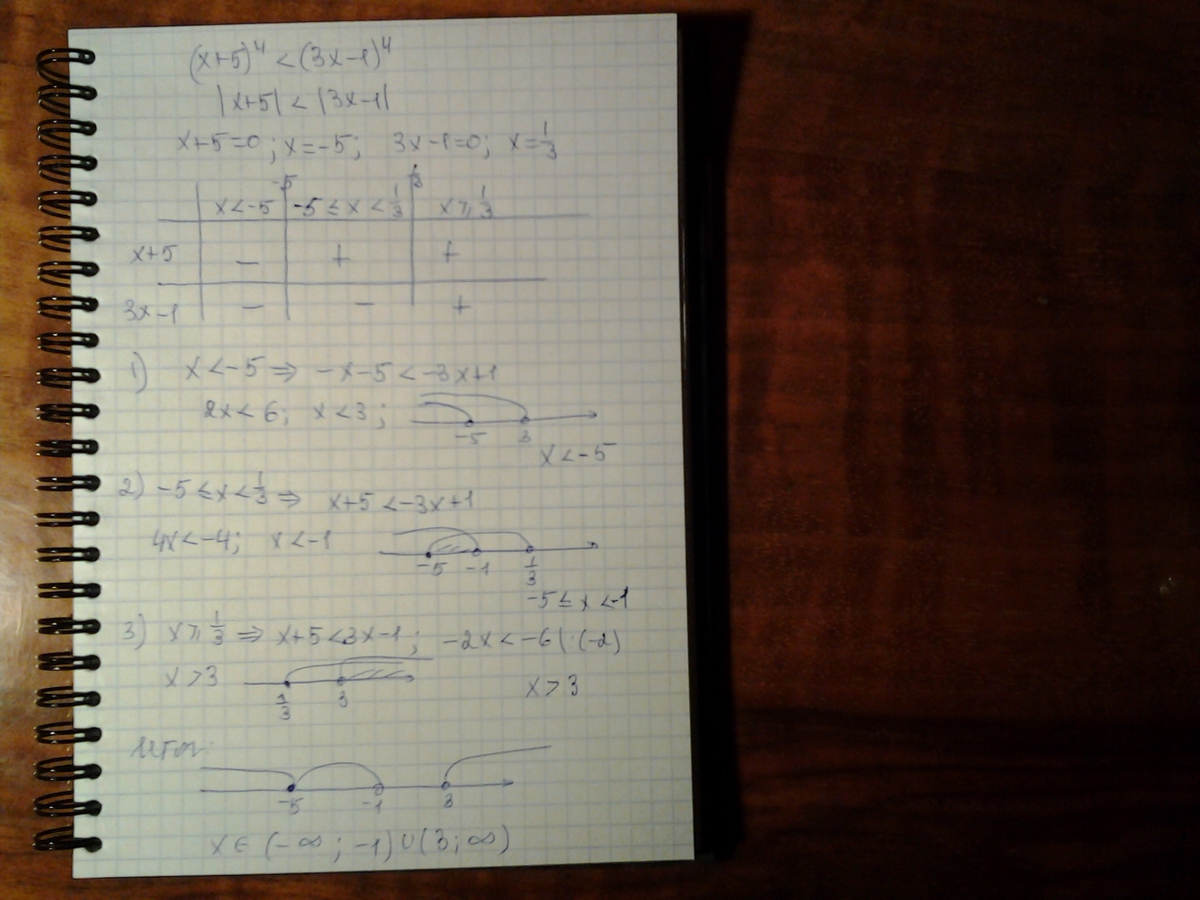 (x+5)⁴ < (3x-1)⁴
|x+5| < |3x-1|
x+5=0; x=-5; 3x-1=0; x=1/3
-5 1/3
x<-5 -5≤x<1/3 x⩾1/3
x+5 − + +
3x-1 − − +
1) x<-5 ⇒ -x-5<-3x+1
2x<6; x<3;
-5 3
x<-5
2) -5≤x<1/3 ⇒ x+5<-3x+1
4x<-4; x<-1
-5 -1 1/3
-5≤x<-1
3) x⩾1/3 ⇒ x+5<3x-1; -2x<-6|:(-2)
x>3 x>3
1/3 3
Итог:
-5 -1 3
x∈(-∞;-1)∪(3;∞)